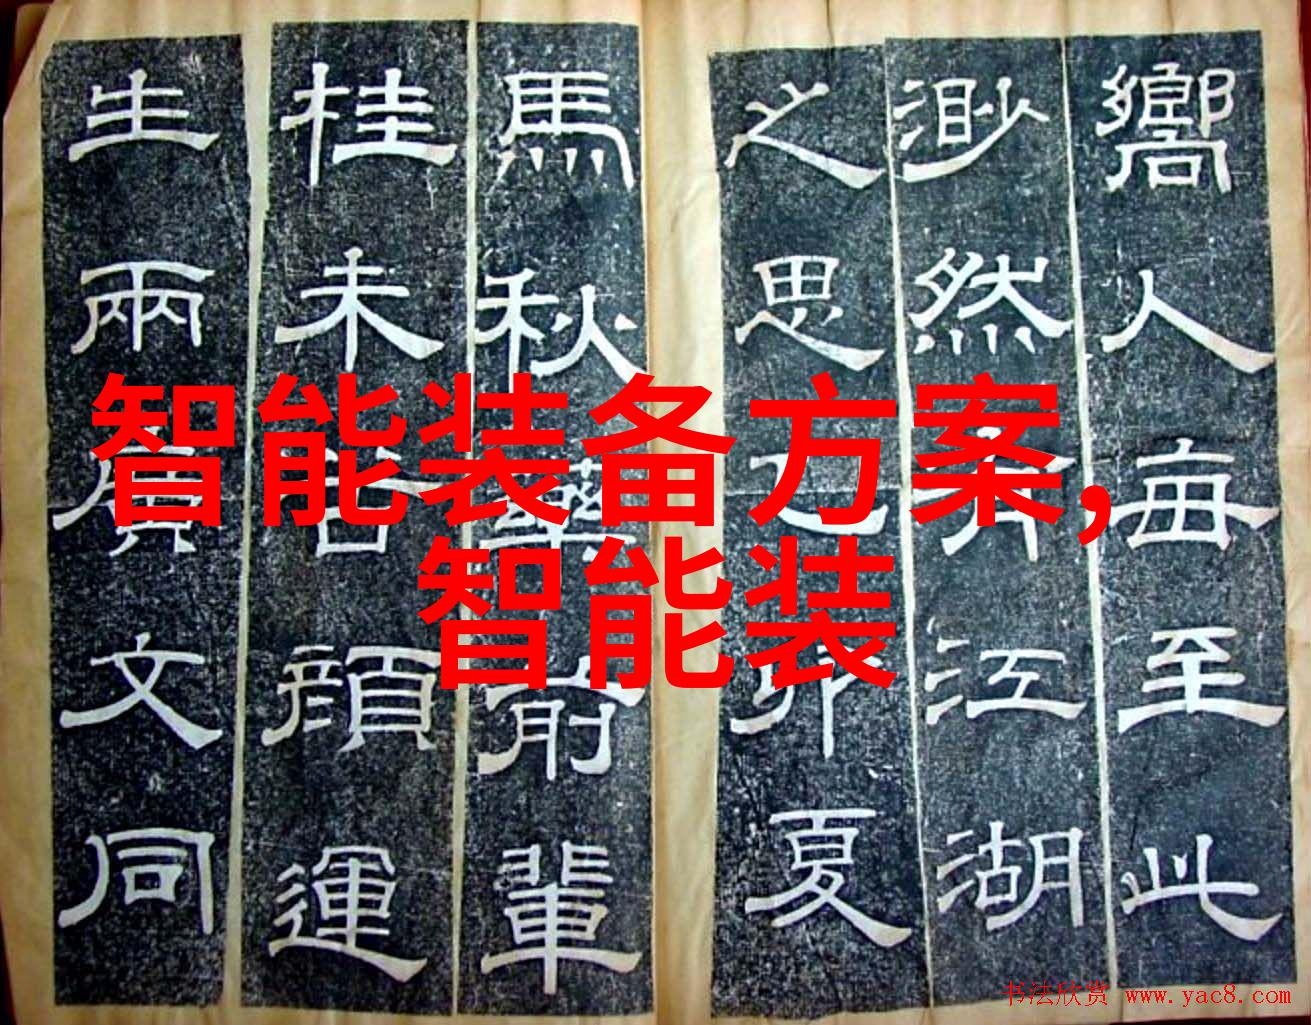 嚮人每至此
渺然有江湖
之思己卯夏
馬秋藥前輩
桂未谷顏運
生兩廣文同
智能装备方案,
智能装
书法欣赏 www.yac8.com